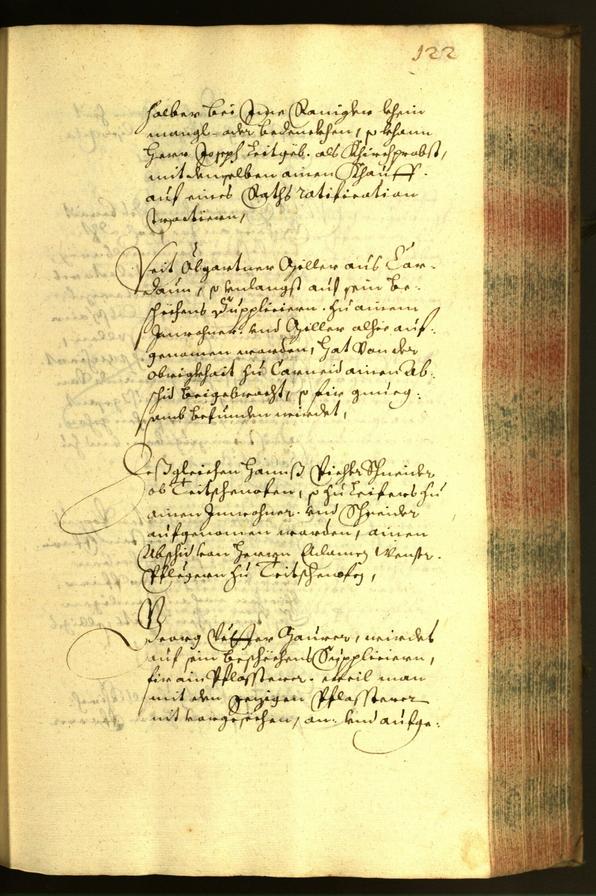 122
halber bei Jme Ranigler khein
mangl- oder bedenckhen, so khann
Herr Joseph Leitgeb. als Khirchprobst,
mit demselben ainen Khauff.
auf eines Raths ratification
tractiern,
Veit Ölgartner Hiller aus Car-
daun, so venlangst auf sein be-
schehens Suppliciern. zu ainem
Jnwohner. und Hiller alhie auf-
genomen worden, hat von der
Obrigkhait zu Carneid ainen Ab-
schid beigebracht, so für gnueg-
samb befunden wirdet,
Deßgleichen Hannß Pichler Schneider
ob Teitschenofen, so zu Leifers zu
ainen Jnwohner. und Schneider
aufgenomen worden, ainen
Abschid von Herrn Adamen
Pflegern zu Teitschenofen,
Georg Maurer, wirdet
auf sein beschehens Suppliciern,
für ain Pflassterer. weil man
mit den yezigen Pflassterer
nit vorgesechen, an- und aufge-